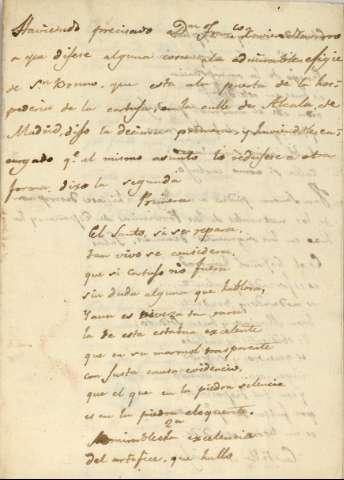 Haviendo precisado a Dn Franco Xavier
a que dixese alguna cosa a la admirable efigie
de Sn Bruno, que esta a la puerta de la hos-
pederia de la cartuja, en la calle de Alcala, de
Madrid, dijo la decima primera, y haviendole en-
cargado qe al mismo asunto la reduxese a otra
forma, dixo la segunda
Primera
El Santo, si se repara,
tan vivo se considera,
que si cartujo no fuera
sin duda alguna que hablara,
Y aun es viveza tan rara
la de esta estatua excelente
que en su marmol trasparente
con justa causa evidencio,
que el que en la piedra silencio
es en la piedra eloquente.
2a
Admirable la excelencia
del artifice, que hallo